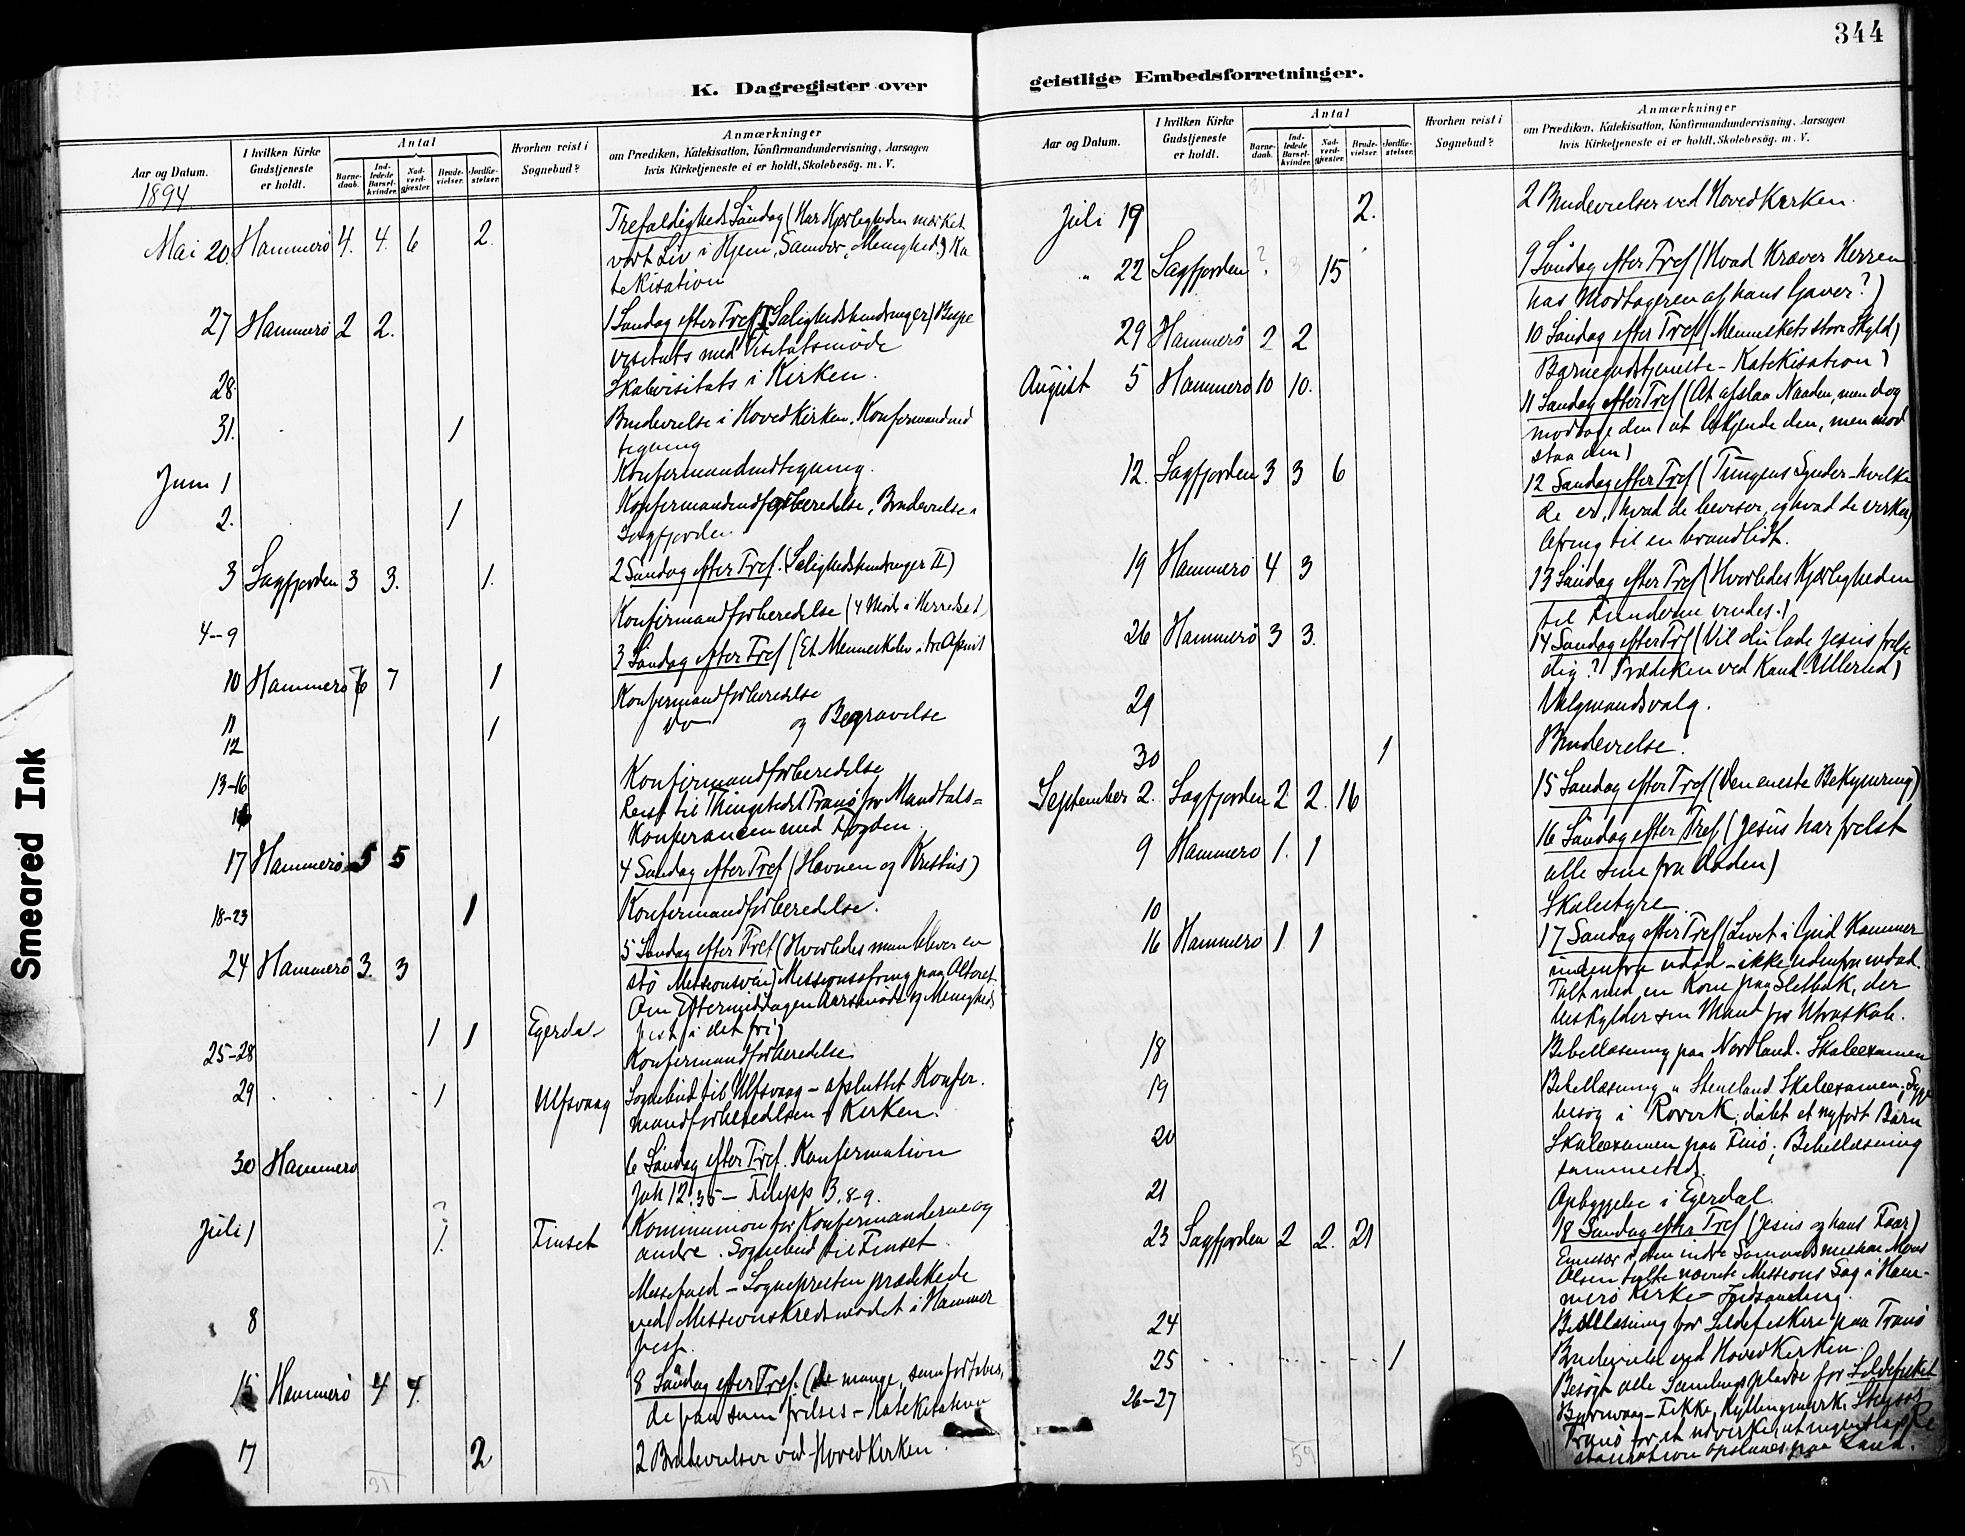 344
K. Dagregister over
geistlige Embedsforretninger.
Aar og Datum.
I hvilken Kirke Gudstjeneste er holdt.
Antal
Barnedaab.
Indledede Barselkvinder.
Nadverdgjæster.
Brudevielser.
Jordfæstelser.
Hvorhen reist i Sognebud?
Anmærkninger
om Prædiken, Katekisation, Konfirmandundervisning, Aarsagen
hvis Kirketjeneste ei er holdt, Skolebesög. m. V.
1894
Mai 20. Hammerø 4. 4. 6 2. Trefaldigheds Søndag (Har Kjærligheden mærket
vort Liv i Hjem, Samver, Menighed?) Ka
tekisation
27 Hammerø 2 2. 1 Søndag efter Tref (I Salighedshindringer) Bispe
visitats med Visitatsmøde
28 Skolevisitats i Kirken.
31. 1 Brudevielse i Hovedkirken. Konfirmandind
tegning
Juni 1 Konfirmandindtegning.
2. 1 Konfirmandforberedelse, Brudevielse i
Sagfjorden
3 Sagfjorden 3 3. 1. 2 Søndag efter Tref. (Salighedshindringer II)
4–9 Konfirmandforberedelse (4 Møde i Herredst.)
10 Hammerø 7 1 3 Søndag efter Tref (Et Menneskeliv i tre Afsnit
11 Konfirmandforberedelse
12 1 do og Begravelse
13–16 Konfirmandforberedelse
16 Reist til Thingstedet Tranø for Mandtals=
Konferancen med Fogden.
17 Hammerø 5 5 4 Søndag efter Tref (Hevnen og Kristus)
18–23 1 Konfirmandforberedelse.
24 Hammerø 3. 3 5 Søndag efter Tref (Hvorledes man bliver en
stø Missionsven) Missionsofring paa Alteret.
Om Eftermiddagen Aarsmøde og Menigheds
fest i det fri)
25–28 1 1 Egerdal Konfirmandforberedelse
29 1 Ulfsvaag Sognebud til Ulfsvaag – afsluttet Konfir.
mandforberedelsen i Kirken.
30 Hammerø 6 Søndag efter Tref. Konfirmation
Joh 12.35 – Filipp 3.8-9.
Juli 1 ? 1. Finset Kommunion for Konfirmanderne og
andre. Sognebud til Finset.
8 Messefald – Sognepresten prædikede
ved Missionskredsmødet i Hammer
fest.
15 Hammerø 4 4. 8 Søndag efter Tref. (De mange, som fortabes,
de faa som frelses – Katekisation
17 2 2 Brudevielser ved Hovedkirken.
31
Aar og Datum.
I hvilken Kirke Gudstjeneste er holdt.
Antal
Barnedaab.
Indledede Barselkvinder.
Nadverdgjæster.
Brudevielser.
Jordfæstelser.
Hvorhen reist i Sognebud?
Anmærkninger
om Prædiken, Katekisation, Konfirmandundervisning, Aarsagen
hvis Kirketjeneste ei er holdt, Skolebesög. m. V.
31
Juli 19 2. 2 Brudevielser ved Hovedkirken.
" 22 Sagfjorden ? 3 15 9 Søndag efter Tref (Hvad kræver Herren
hos Modtageren af hans Gaver?)
29 Hammerø 2 2 10 Søndag efter Tref (Menneskets store Skyld)
Barnegudstjeneste – Katekisation)
August 5 Hammerø 10 10. 11 Søndag efter Tref (At afslaa Naaden, men dog
modtage den, at bekjende den, men mod
staa den)
12. Sagfjorden 3 3 6 12 Søndag efter Tref (Tungens Synder – hvilke
de er, hvad de beviser, og hvad de virker)
Ofring til en brandlidt.
19 Hammerø 4 3 13 Søndag efter Tref (Hvorledes Kjærligheden
til Fienderne vindes.)
26 Hammerø 3 3. 14 Søndag efter Tref (Vil du lade Jesus frelse
dig? Prædiken ved Kand. Ellerud)
29 Valgmandsvalg.
30 1 Brudevielse.
September 2. Sagfjorden 2 2. 16 15 Søndag efter Tref (Den eneste Bekymring)
9 Hammerø 1. 1 16 Søndag efter Tref. (Jesus har frelst
alle sine fra Døden)
10 Skolestyre.
16 Hammerø 1. 1 17 Søndag efter Tref (Livet i Gud kommer
indenfra udad – ikke udenfra indad.
Talt med en Kone paa Sletbak, der
beskylder sin Mand for Utroskab.
18 Bibellæsning paa Nordland. Skoleexamen
19 Bibellæsning i Steneland. Skoleexamen, Syge
besøg i Rørvik, døbt et nyfødt Barn
20 Skoleexamen paa Finø; Bibellæsning
sammesteds.
21 Opbyggelse i Egerdal.
23 Sagfjorden 2 2. 21 18 Søndag efter Tref (Jesus og hans Faar)
Emissær i den indre Sømandsmission Mons
Olsen talte nævnte Missions Sag i Ham-
merø Kirke – Indsamling.
24 Bibellæsning for Sildefiskere paa Tranø
25 1 Brudevielse ved Hovedkirken.
26–27 Besøgt alle Samlingspladse for Sildefisket
59
Smeared Ink